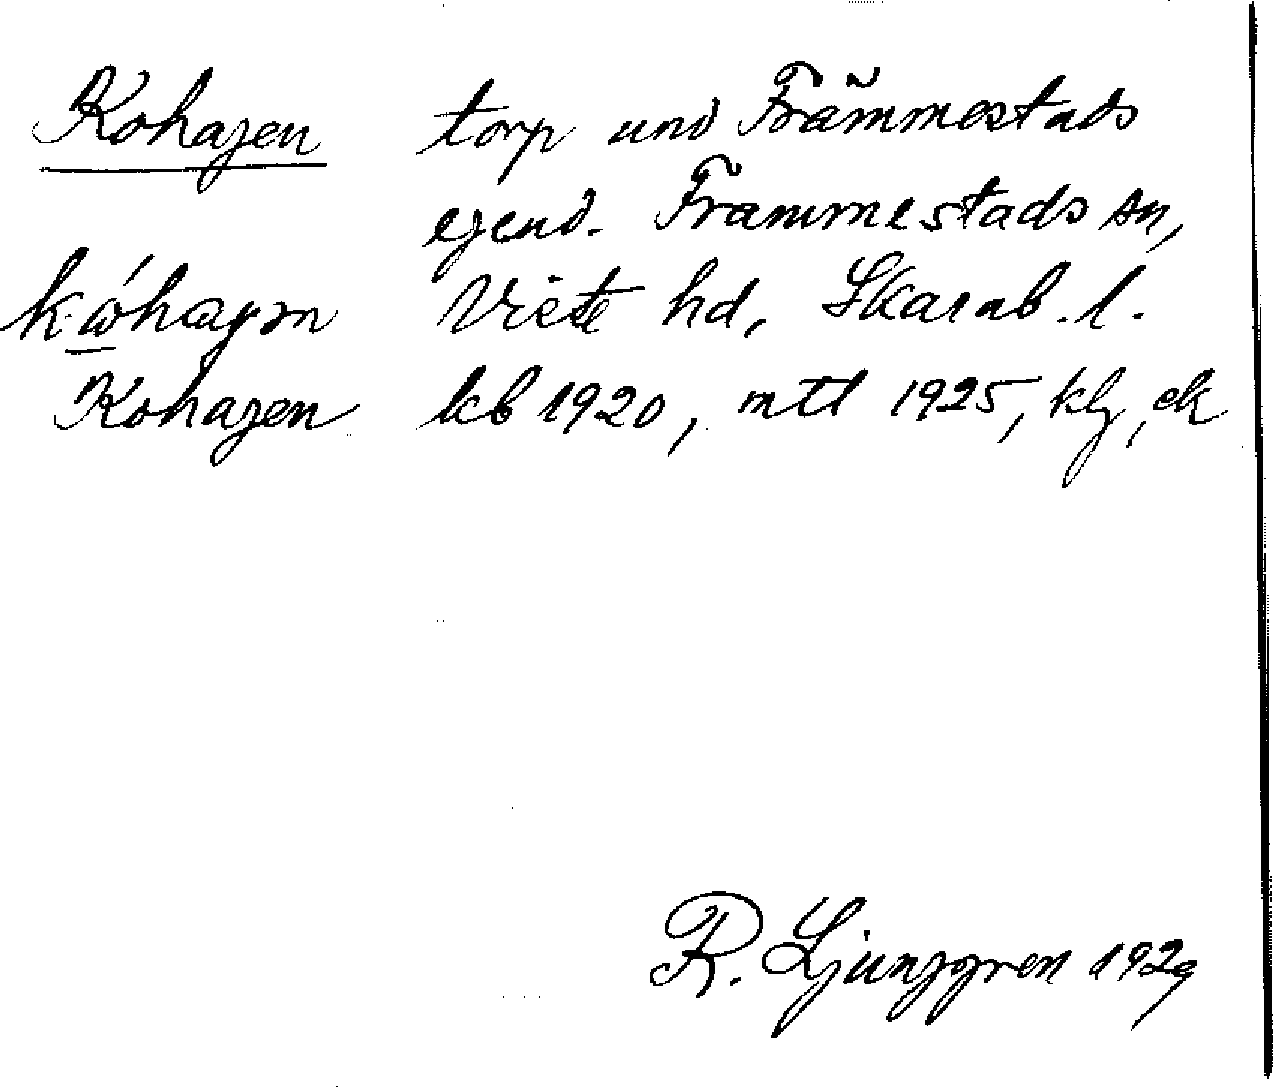 Kohagen torp und Främmestads
egend. Främmestads sn,
Viste hd, Skarab. l.
Kohagen kb 1920, mtl 1925, klg, ek
R. Ljunggren 1929